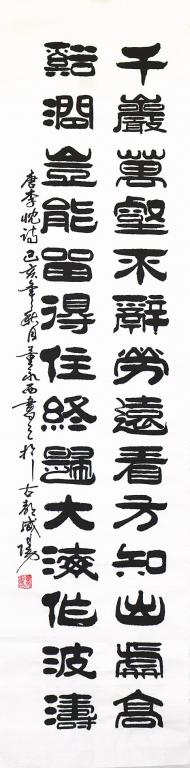 千巖萬壑不辭勞遠看方知出處高
谿澗豈能留得住終歸大海作波濤
唐李忱诗己亥年秋月董永西書之於古都咸陽